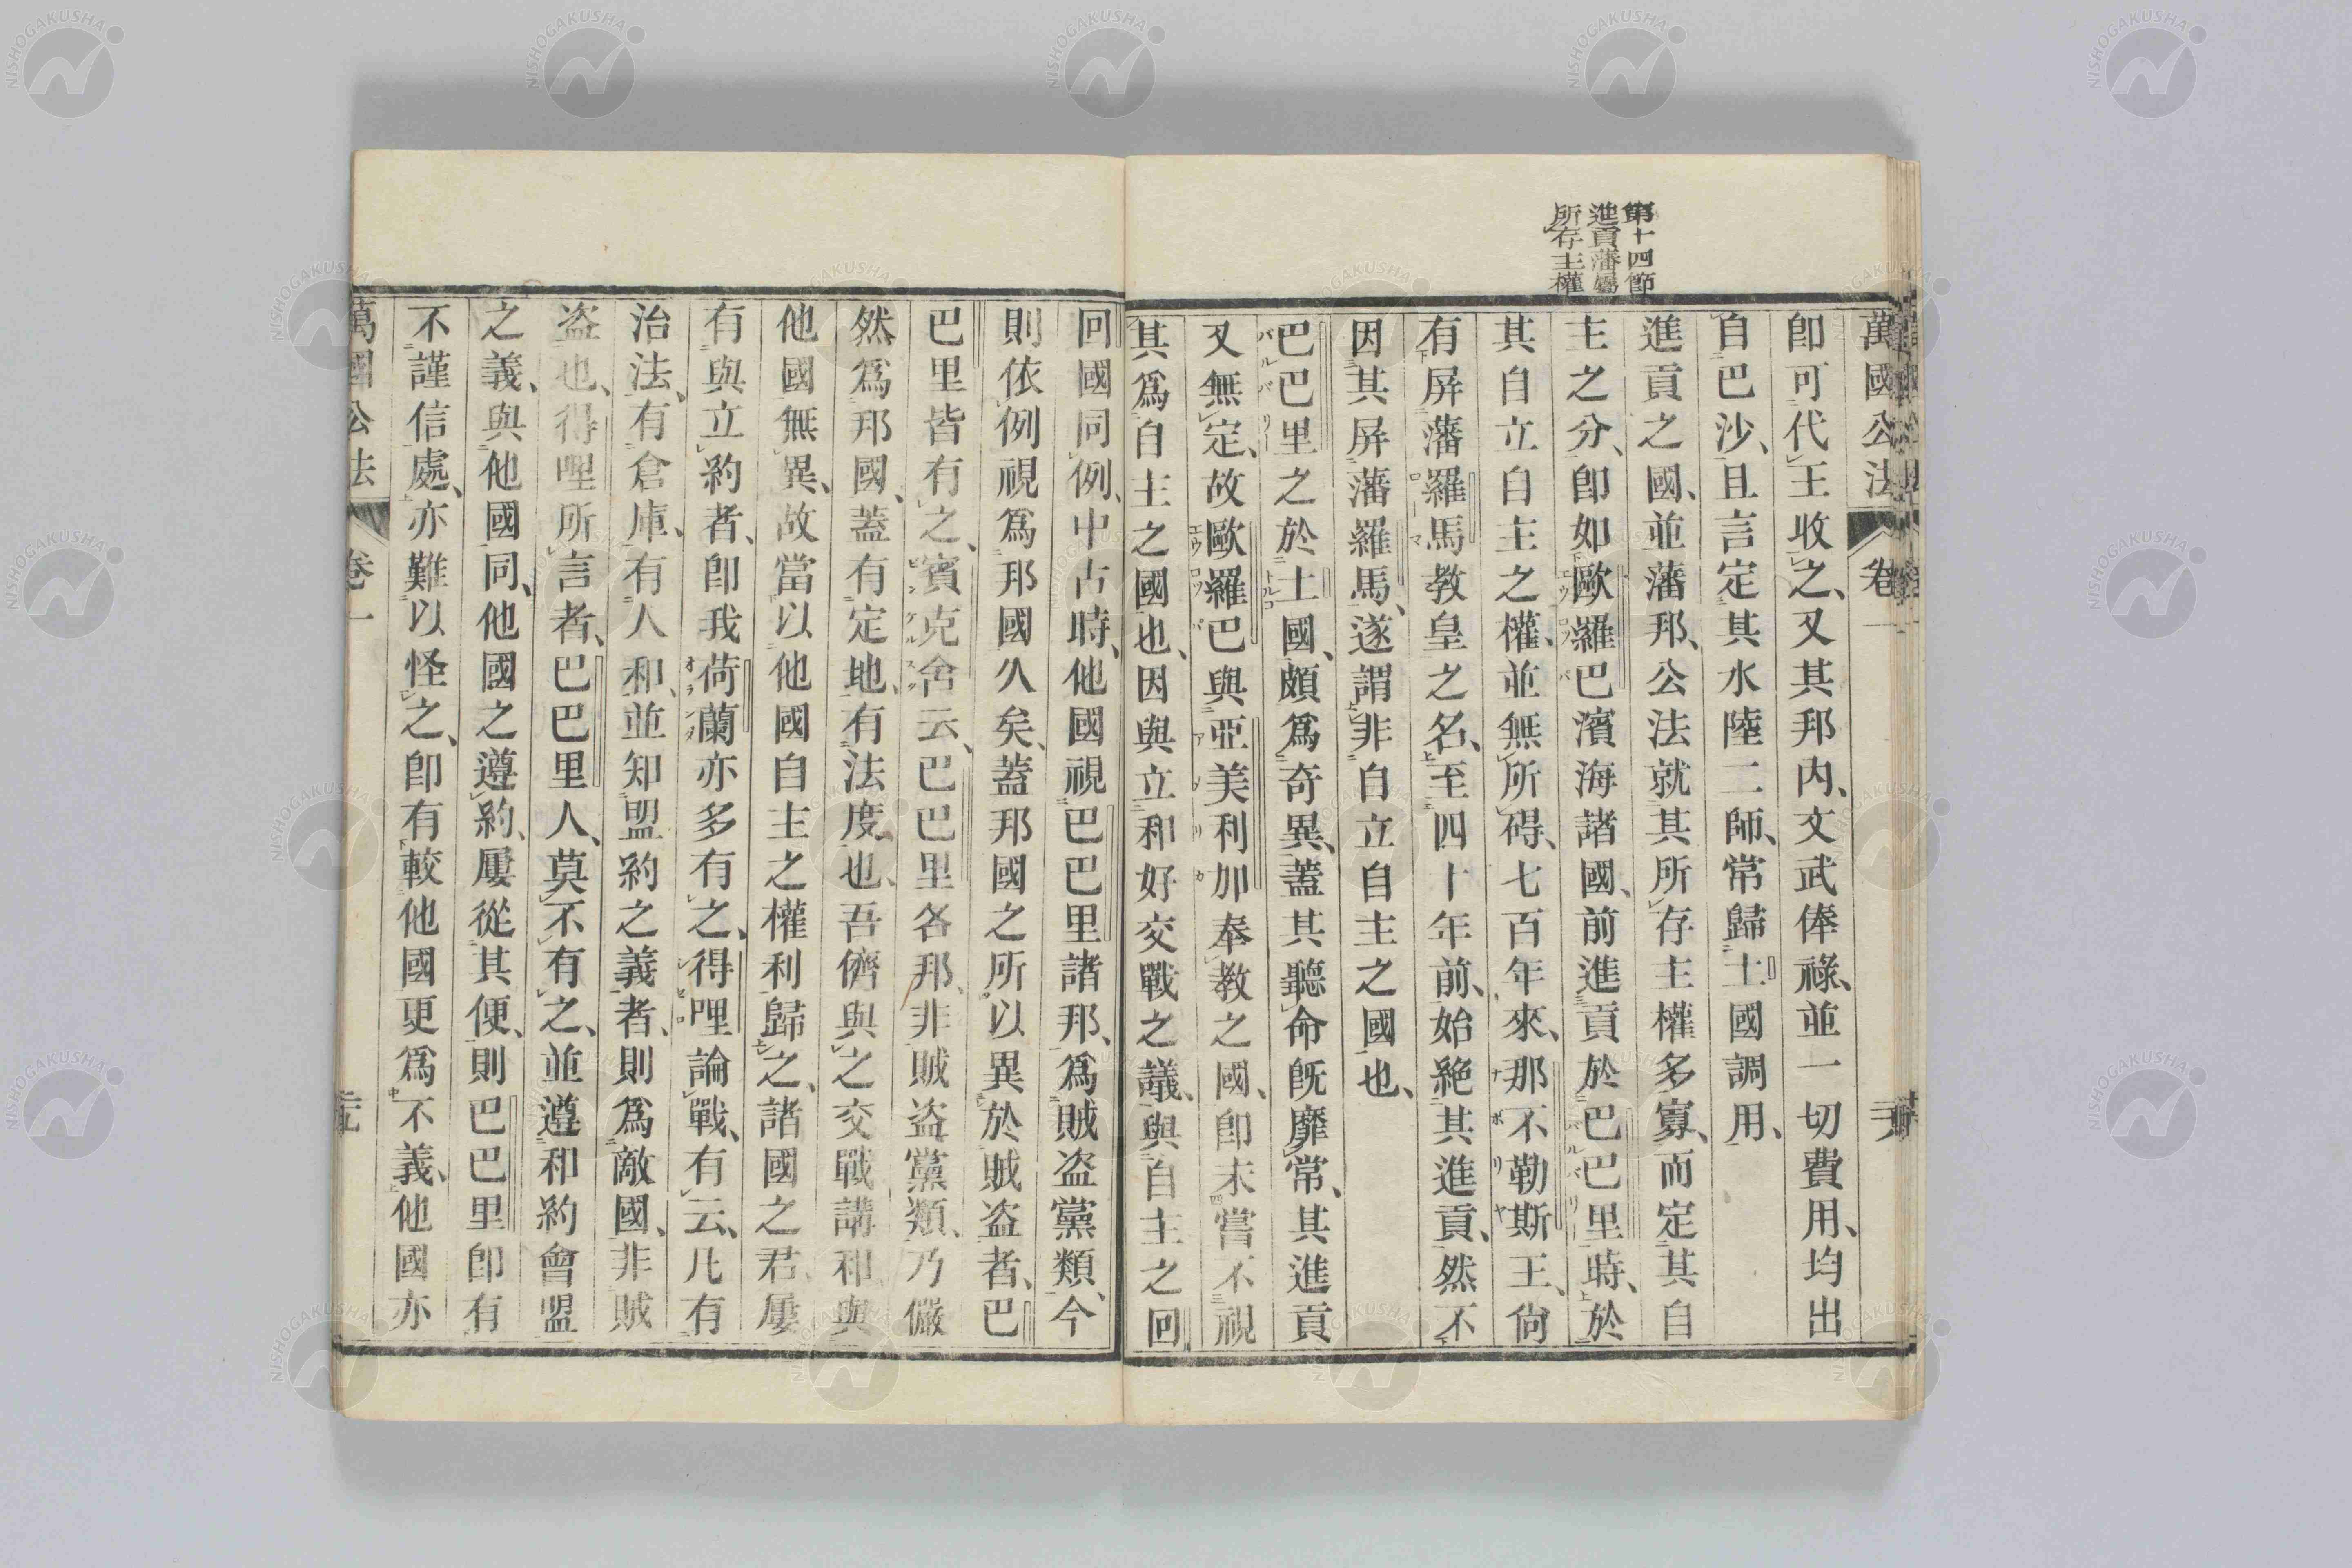 萬國公法 卷一
第十四節
進貢藩屬
所存主權
卽可代王收之、又其邦內、文武俸祿、並一切費用、均出
自巴沙、且言定其水陸二師、常歸土國調用、
進貢之國、並藩邦、公法就其所存主權多寡、而定其自
主之分、卽如歐羅巴濱海諸國、前進貢於巴巴里時、於
其自立自主之權、並無所碍、七百年來、那不勒斯王、尙
有屏藩羅馬教皇之名、至四十年前、始絕其進貢、然不
因其屏藩羅馬、遂謂非自立自主之國也、
巴巴里之於土國、頗爲奇異、蓋其聽命旣靡常、其進貢
又無定、故歐羅巴與亞美利加奉教之國、卽未嘗不視
其爲自主之國也、因與立和好交戰之議、與自主之回
回國同例、中古時、他國視巴巴里諸邦、爲賊盗黨類、今
則依例視爲邦國久矣、蓋邦國之所以異於賊盗者、巴
巴里皆有之、賓克舍云、巴巴里各邦、非賊盗黨類、乃儼
然爲邦國、蓋有定地、有法度也、吾儕與之交戰講和、與
他國無異、故當以他國自主之權利歸之、諸國之君、屢
有與立約者、卽我荷蘭亦多有之、得哩論戰、有云、凡有
治法、有倉庫、有人和、並知盟約之義者、則爲敵國、非賊
盗也、得哩所言者、巴巴里人、莫不有之、並遵和約會盟
之義、與他國同、他國之遵約、屢從其便、則巴巴里卽有
不謹信處、亦難以怪之、卽有較他國更爲不義、他國亦
萬國公法 卷一
NISHOGAKUSHA